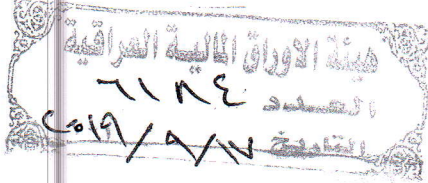 هيئة الاوراق المالية العراقية
العدد ٦١٨٤
التاريخ ٢٠١٩/٩/١٧